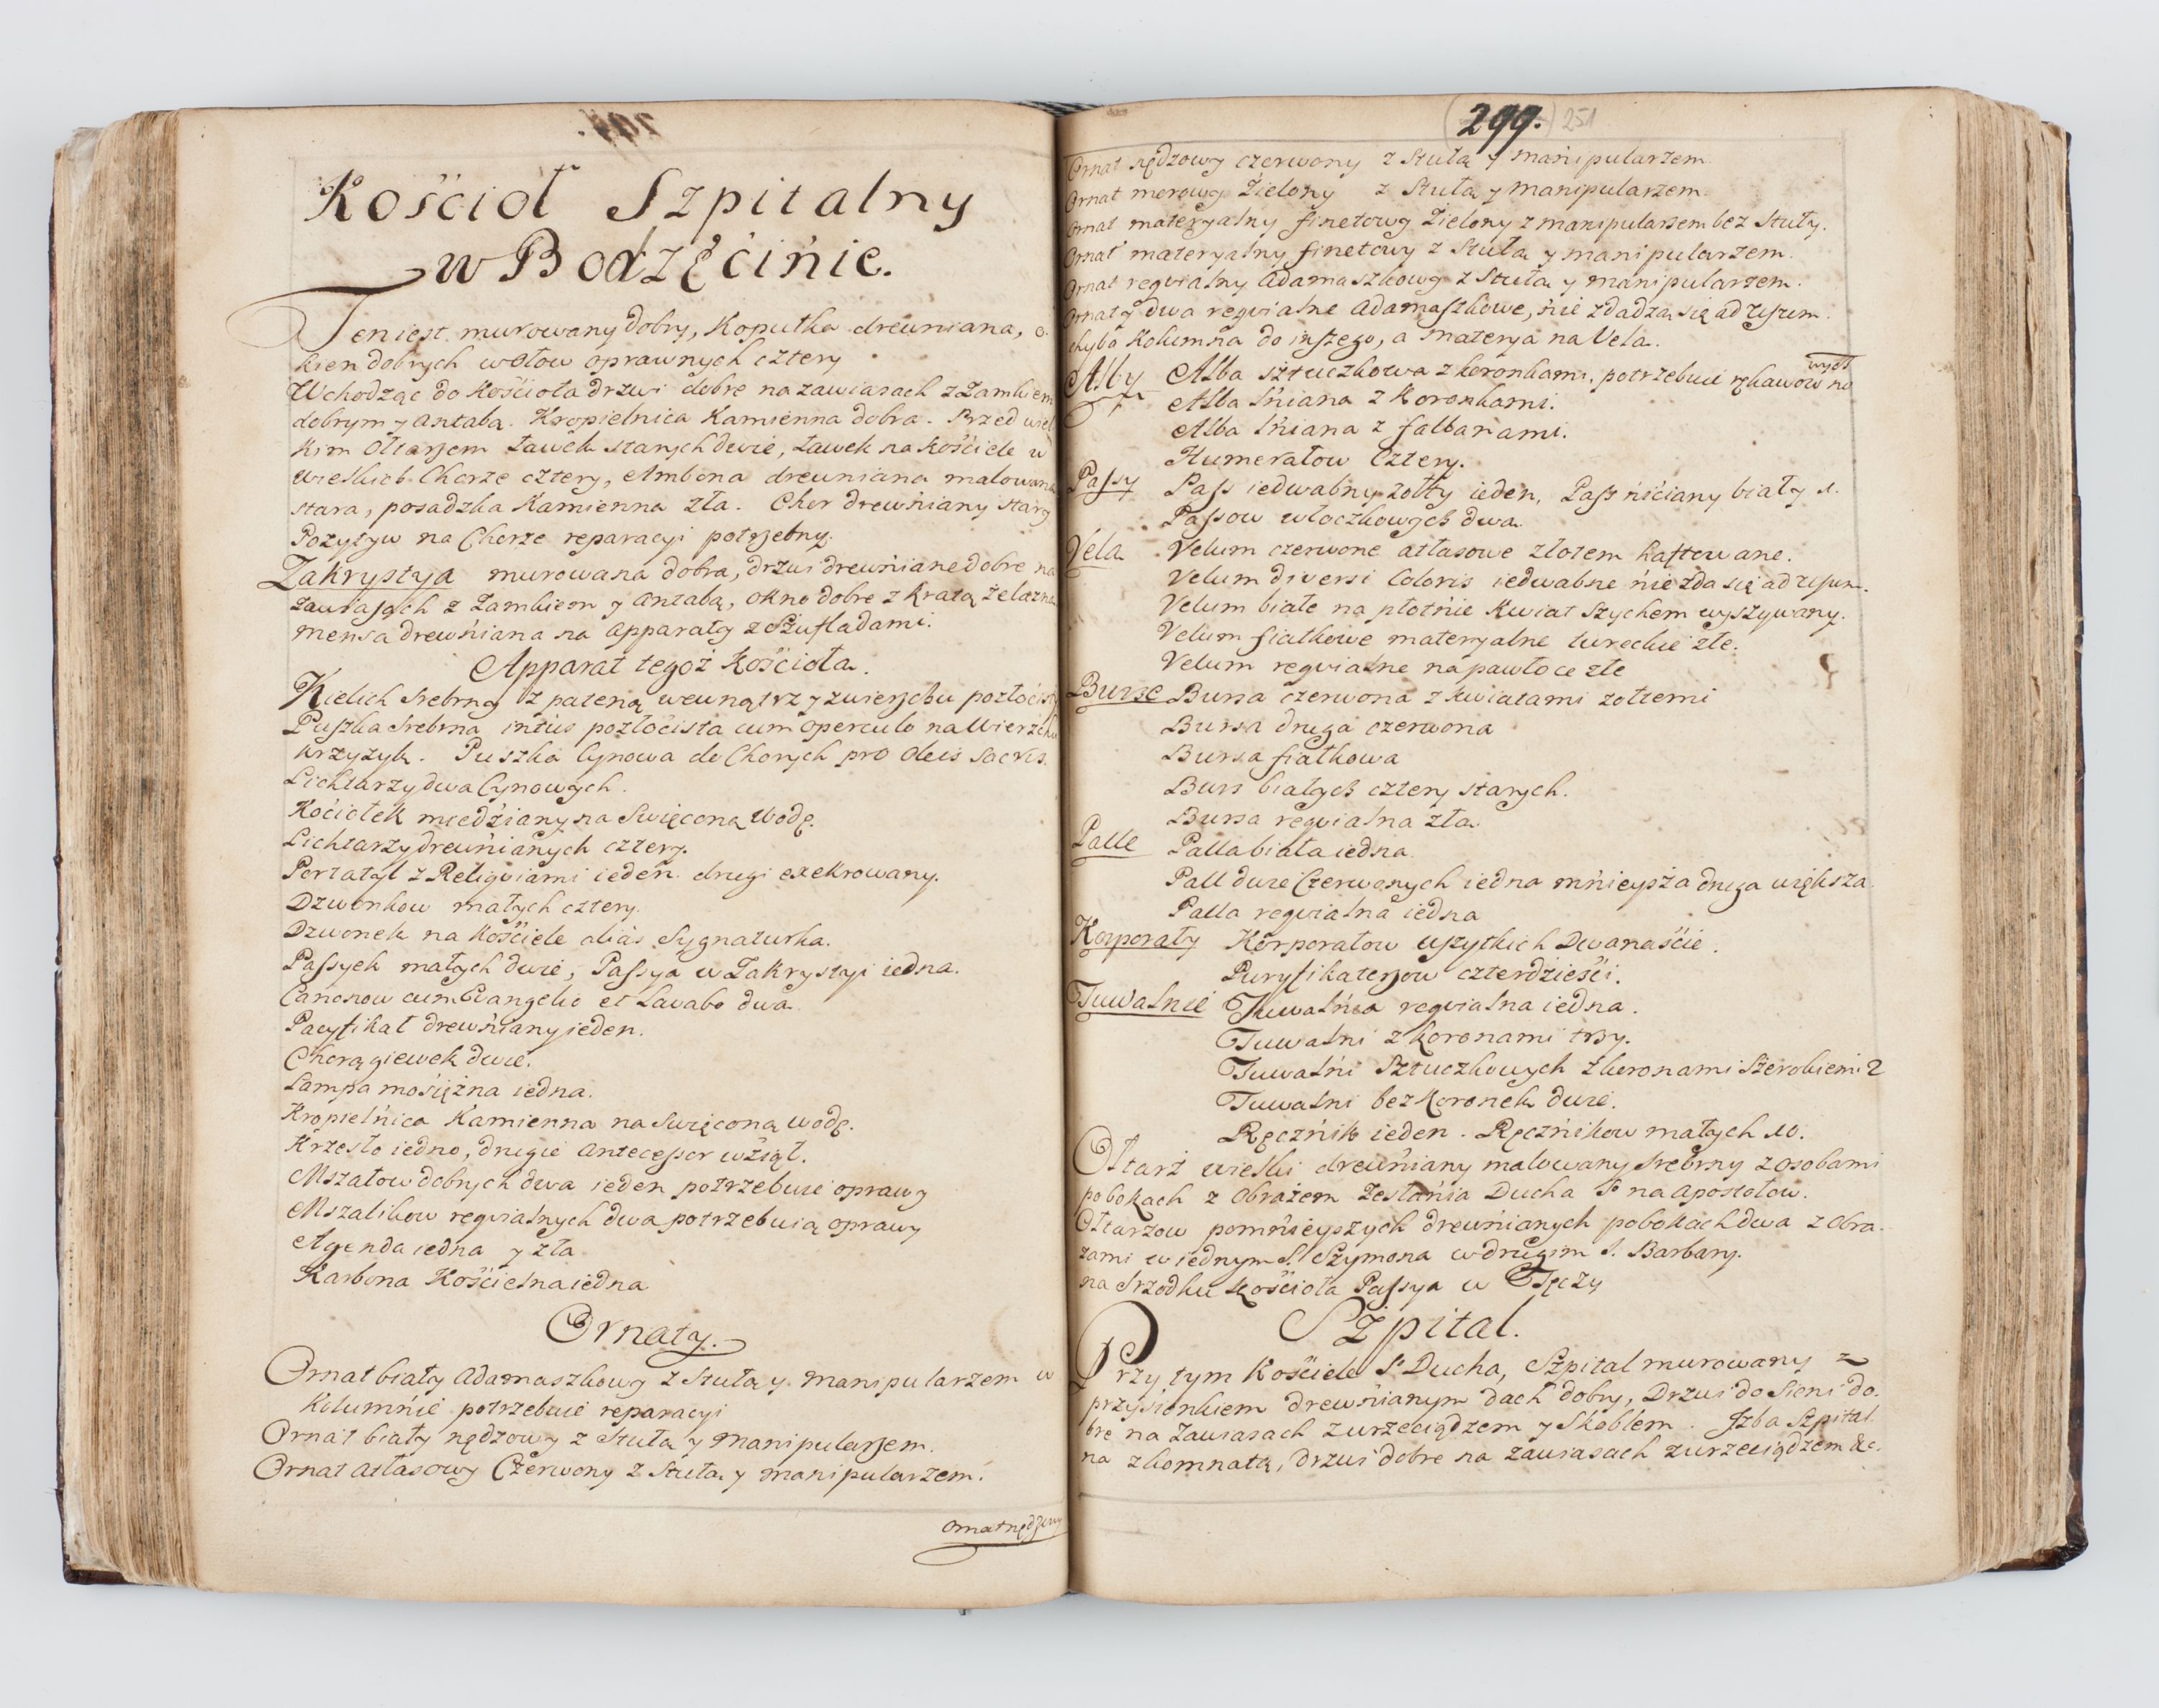 Kościoł Szpitalny
w Bodzęcinie.
Ten iest murowany dobry, Kopułka drewniana, o-
kien dobrych wołow oprawnych cztery
Wchodząc do Kościoła drzwi dobre na zawiasach z Zamkiem
dobrym y antabą. Kropielnica Kamienna dobra. Przed wiel
kim Ołtarzem Ławek starych dwie, Ławek na Kościele w
wielkich Chorze cztery, Ambona drewniana malowana
stara, posadzka Kamienna zła. Chor drewniany stary
Pozytyw na Chorze reparacyi potrzebny.
Zakrystya murowana dobra, drzwi drewniane dobre na
zawiasach z Zamkiem y antabą, okno dobre z kratą żelazną
mensa drewniana na apparaty z Szufladami.
Apparat tegoż Kościoła.
Kielich srebrny z pateną wewnątrz y zwierzchu pozłocisty
Puszka srebrna intus pozłocista cum operculo na wierzchu
krzyżyk. Puszka Cynowa do Chorych pro oleis sacris.
Lichtarzy dwa Cynowych.
Kociołek miedziany na Swięconą Wodę.
Lichtarzy drewnianych cztery.
Portatyl z Religviami ieden drugi exekrowany.
Dzwonkow małych cztery.
Dzwonek na Kościele alias Sygnaturka.
Passyek małych dwie, Passya w Zakrystyi iedna.
Canonow cum Evangelio et Lavabo dwa.
Pacyfikał drewniany ieden.
Chorągiewek dwie.
Lampa mosiężna iedna.
Kropielnica Kamienna na Swięconą wodę.
Krzesło iedno, drugie Antecessor wziął.
Mszałow dobrych dwa ieden potrzebuie oprawy
Mszalikow regvialnych dwa potrzebuią oprawy
Agenda iedna y zła
Karbona Kościelna iedna
Ornaty.
Ornat biały Adamaszkowy z Stułą y manipularzem w
Kolumnie potrzebuie reparacyi
Ornat biały nędzowy z Stułą y manipularzem.
Ornat atłasowy Czerwony z Stułą y manipularzem.
Ornat nędzowy
299.
251
Ornat nędzowy czerwony z Stułą y manipularzem
Ornat morowy Zielony z Stułą y manipularzem
Ornat materyalny finetowy Zielony z manipularzem bez Stuły.
Ornat materyalny finetowy z Stułą y manipularzem.
Ornat regvialny Adamaszkowy z Stułą y manipularzem.
Ornaty dwa regvialne Adamaszkowe, nie zdadzą się ad usum.
chyba Kolumna do inszego, a materya na Vela.
Alby Alba sztuczkowa z koronkami, potrzebuie rękawow no
wych
Alba lniana z Koronkami.
Alba lniana z falbanami.
Humerałow Cztery.
Passy Pass iedwabny zołty ieden, Pass niciany biały 1.
Passow włoczkowych dwa.
Vela Velum czerwone atłasowe złotem haftowane.
Velum diversi Coloris iedwabne nie zda się ad usum.
Velum białe na płotnie Kwiat szychem wyszywany.
Velum fiałkowe materyalne tureckie złe.
Velum regvialne na pawłoce złe
Burse Bursa czerwona z kwiatami zołtemi
Bursa druga czerwona
Bursa fiałkowa
Burs białych cztery starych.
Bursa regvialna zła.
Palle Palla biała iedna
Pall dwie Czerwonych iedna mnieysza druga większa
Palla regvialna iedna
Korporały Korporałow wszytkich Dwanaście.
Puryfikaterzow czterdzieści.
Tuwalnie Tuwalnia regvialna iedna.
Tuwalni z koronami trzy.
Tuwalni Sztuczkowych z koronami Szerokiemi 2
Tuwalni bez Koronek dwie.
Ręcznik ieden. Ręcznikow małych 10.
Ołtarz wielki drewniany malowany srebrny z osobami
po bokach z Obrazem Zesłania Ducha S. na Apostołow.
Ołtarzow pomnieyszych drewnianych po bokach dwa z Obra-
zami w iednym S. Szymona w drugim S. Barbary.
na Srzodku Kościoła Passya w Tęczy
Szpital.
Przy tym Kościele S. Ducha, Szpital murowany z
przysionkiem drewnianym dach dobry, Drzwi do Sieni do-
bre na Zawiasach z wrzeciądzem y Skoblem. Izba Szpital-
na z komnatą, drzwi dobre na zawiasach z wrzeciądzem &c.